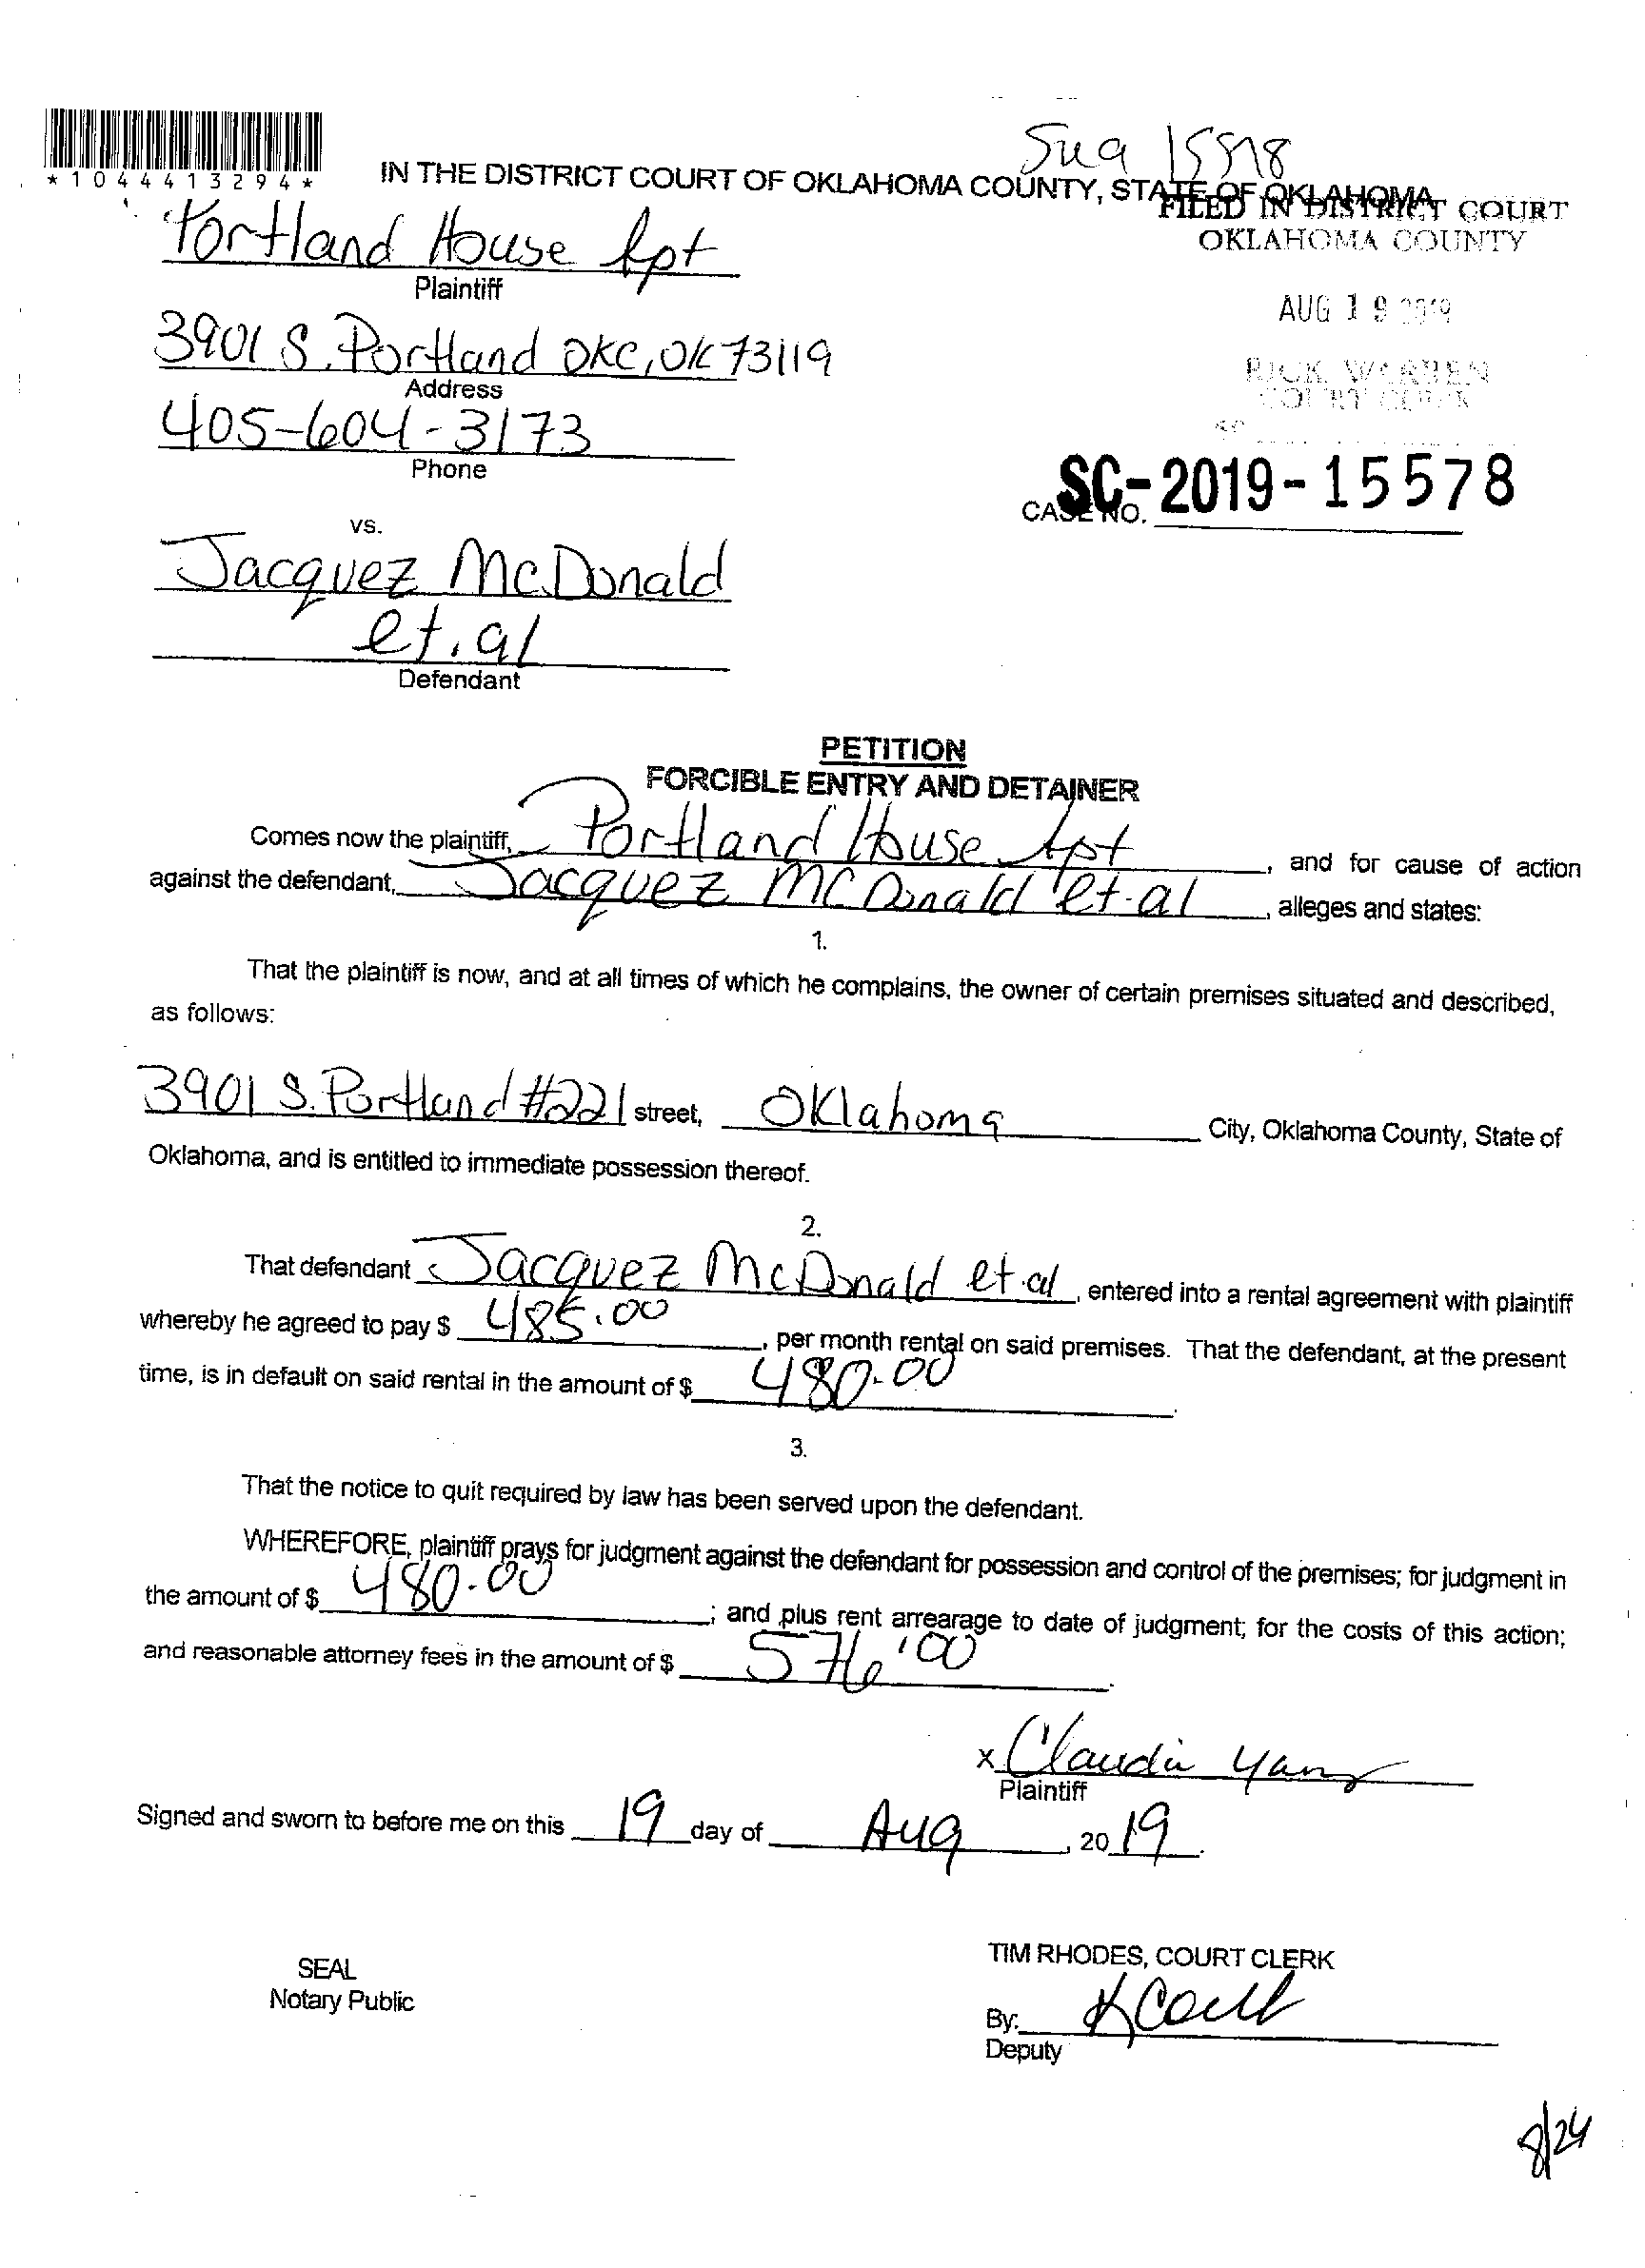 *1044413294*
IN THE DISTRICT COURT OF OKLAHOMA COUNTY, STATE OF OKLAHOMA
FILED IN DISTRICT COURT
OKLAHOMA COUNTY
Portland House Apt
Plaintiff
AUG 19 2019
3901 S. Portland OKC, OK 73119
Address
RICK WARREN
COURT CLERK
405-604-3173
Phone
SC-2019-15578
CASE NO.
vs.
Jacquez McDonald
et. al
Defendant
PETITION
FORCIBLE ENTRY AND DETAINER
Comes now the plaintiff, Portland House Apt, and for cause of action
against the defendant, Jacquez McDonald et.al, alleges and states:
1.
That the plaintiff is now, and at all times of which he complains, the owner of certain premises situated and described,
as follows:
3901 S. Portland #221 street, Oklahoma City, Oklahoma County, State of
Oklahoma, and is entitled to immediate possession thereof.
2.
That defendant Jacquez McDonald et.al, entered into a rental agreement with plaintiff
whereby he agreed to pay $ 485.00, per month rental on said premises. That the defendant, at the present
time, is in default on said rental in the amount of $ 480.00.
3.
That the notice to quit required by law has been served upon the defendant.
WHEREFORE, plaintiff prays for judgment against the defendant for possession and control of the premises; for judgment in
the amount of $ 480.00; and plus rent arrearage to date of judgment; for the costs of this action;
and reasonable attorney fees in the amount of $ 576.00.
x Claudia Yanz
Plaintiff
Signed and sworn to before me on this 19 day of Aug, 2019.
SEAL
Notary Public
TIM RHODES, COURT CLERK
By:
Deputy
8/24